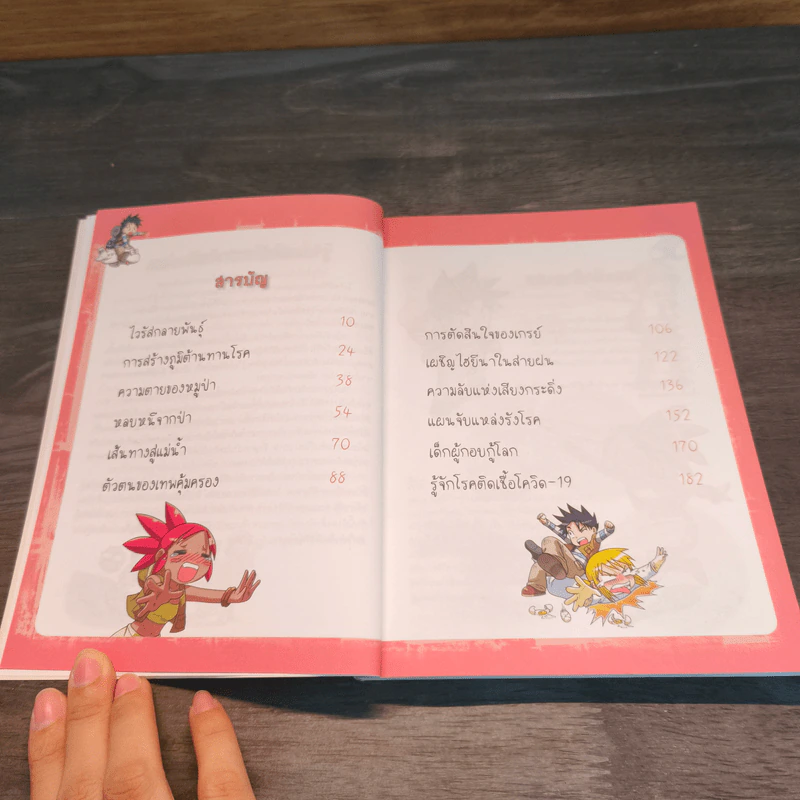 สารบัญ
ไวรัสกลายพันธุ์ 10
การสร้างภูมิต้านทานโรค 24
ความตายของหมูป่า 38
หลบหนีจากป่า 54
เส้นทางสู่แม่น้ำ 70
ตัวตนของเทพคุ้มครอง 88
การตัดสินใจของเกรย์ 106
เผชิญไฮยีนาในสายฝน 122
ความลับแห่งเสียงกระดิ่ง 136
แผนจับแหล่งรังโรค 152
เด็กผู้กอบกู้โลก 170
รู้จักโรคติดเชื้อโควิด-19 182